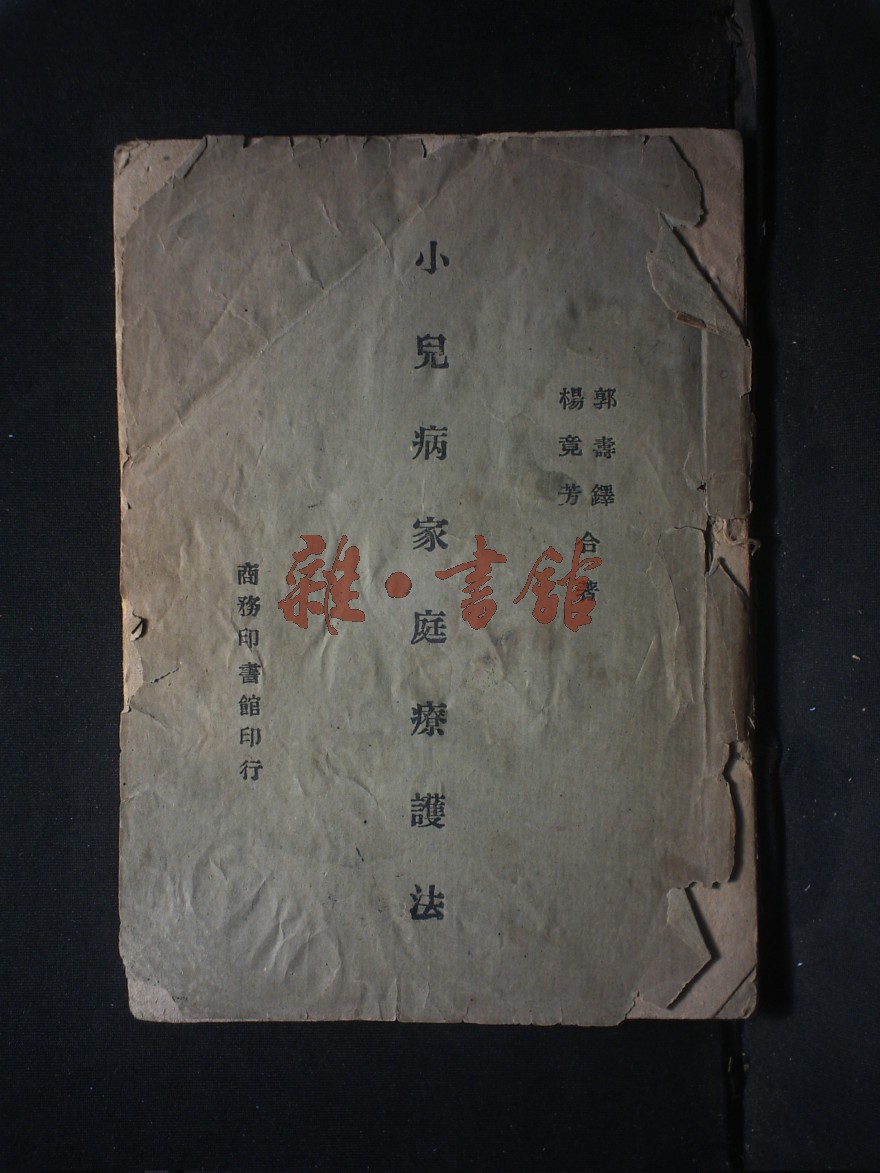 郭壽鐸
楊竟芳
合著
小兒病家庭療護法
商務印書館印行
雜·書館